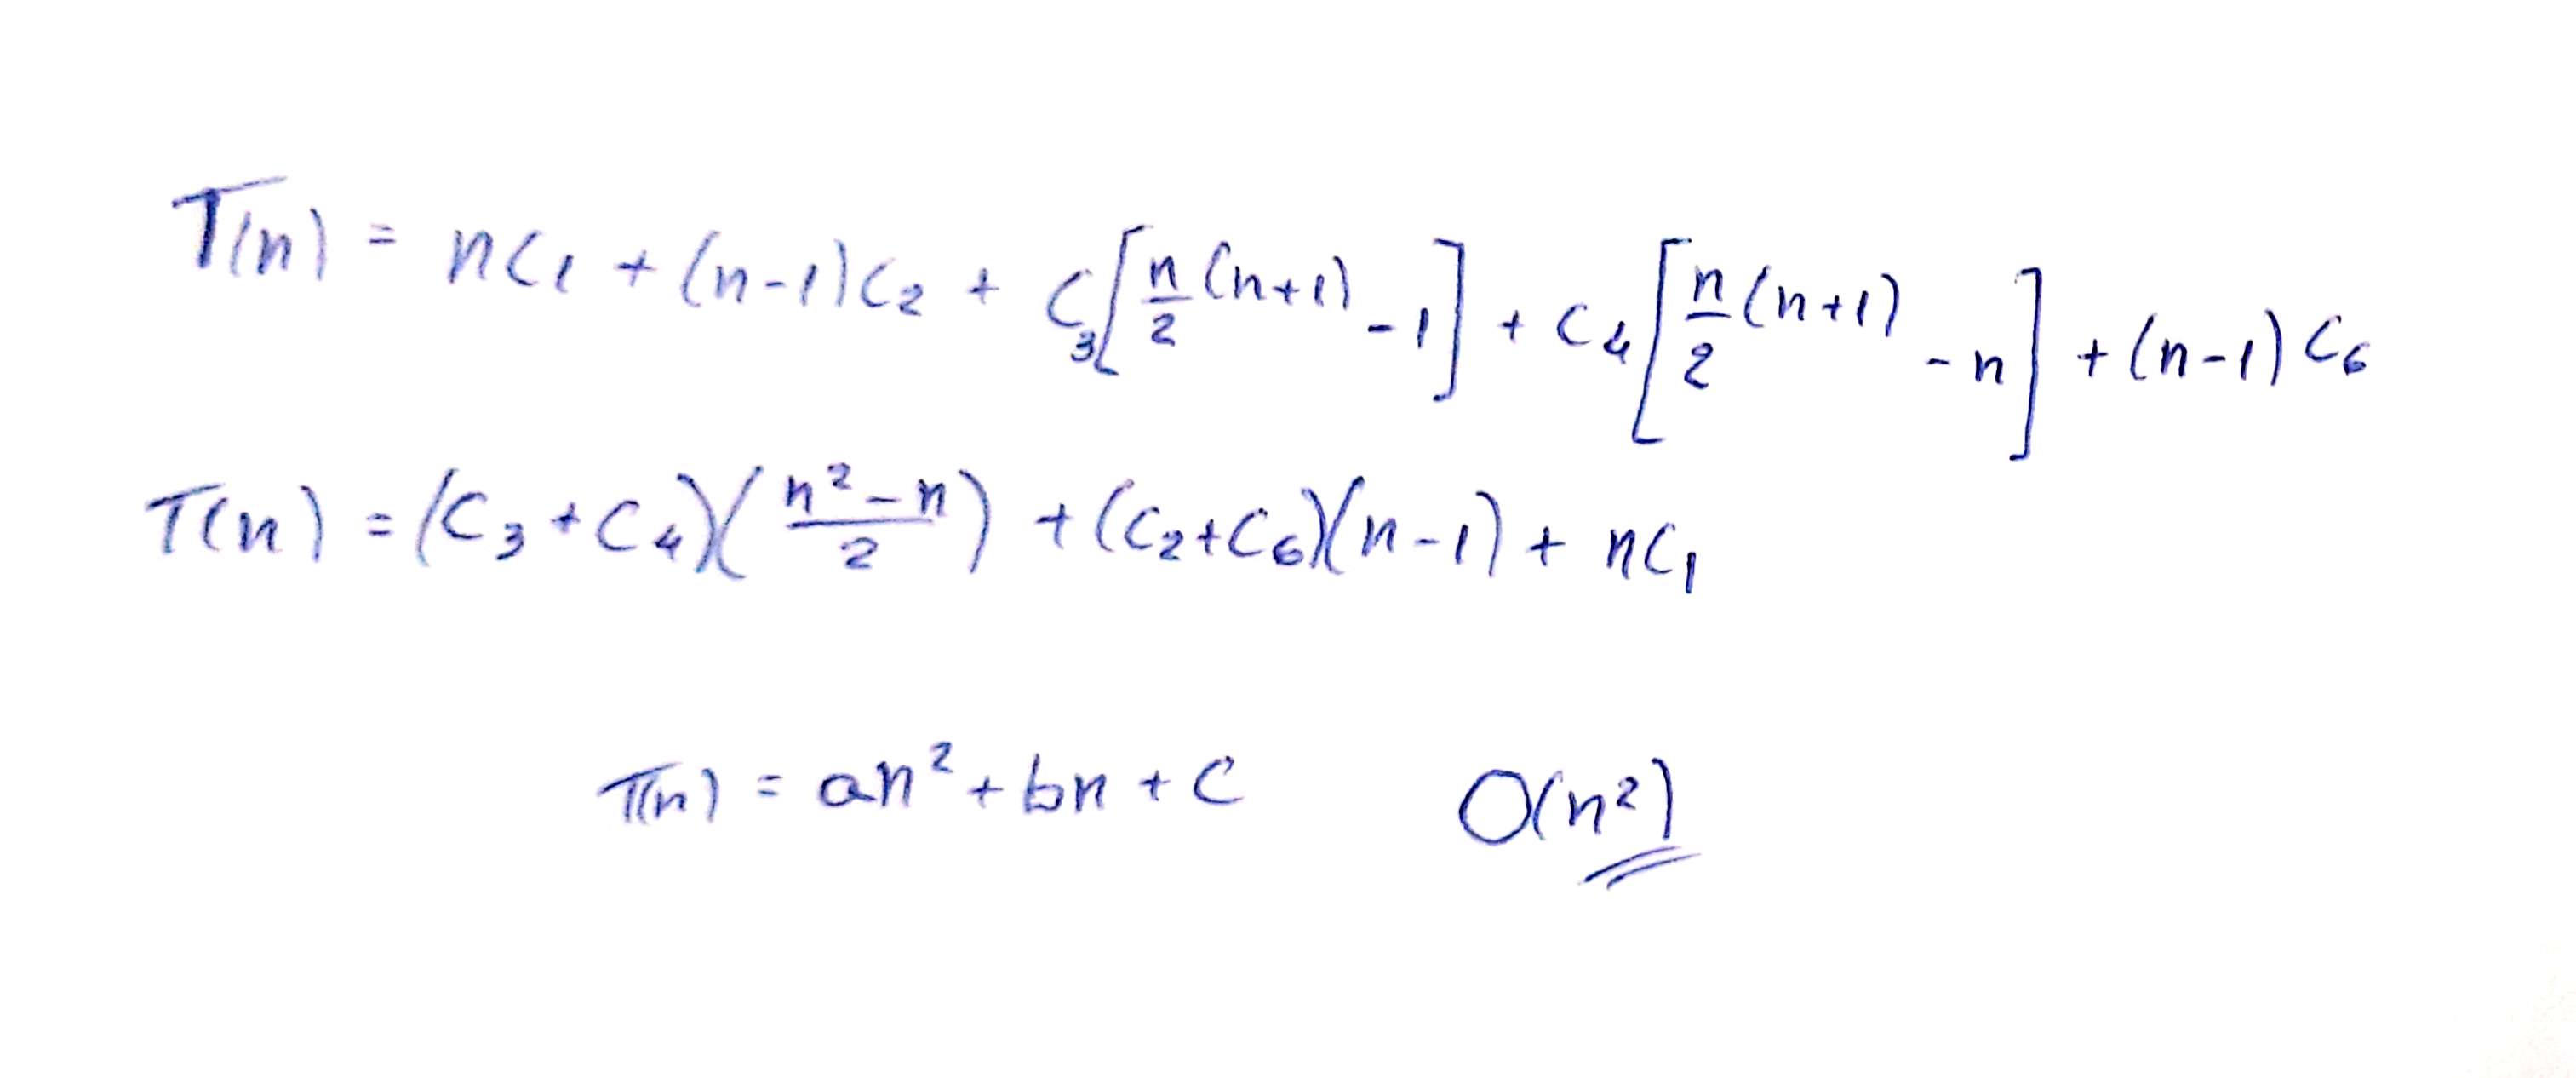 T(n) = nC₁ + (n-1)C₂ + C₃[n/2 (n+1) - 1] + C₄[n/2 (n+1) - n] + (n-1) C₆
T(n) = (C₃+C₄)((n²-n)/2) + (C₂+C₆)(n-1) + nC₁
T(n) = an² + bn + C O(n²)